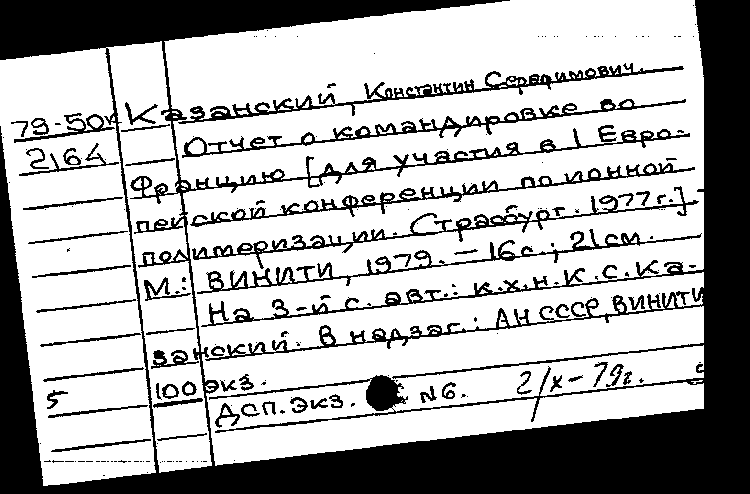 79-50к Казанский, Константин Серафимович.
2164 Отчет о командировке во
Францию [для участия в I Евро-
пейской конференции по ионной
полимеризации. Страсбург. 1977г.].-
М.: ВИНИТИ, 1979. — 16с.; 21см.
На 3-й с. авт.: к.х.н. К.С. Ка-
занский. В надзаг.: АН СССР, ВИНИТИ
5 100 экз.
ДСП. Экз. N6. 2/X-79г.